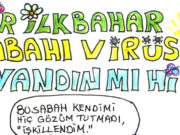 R İLKBAHAR
BAHI VİRÜS
YANDIN MI Hİ
BU SABAH KENDİMİ
HİÇ GÖZÜM TUTMADI,
"İŞKİLLENDİM."